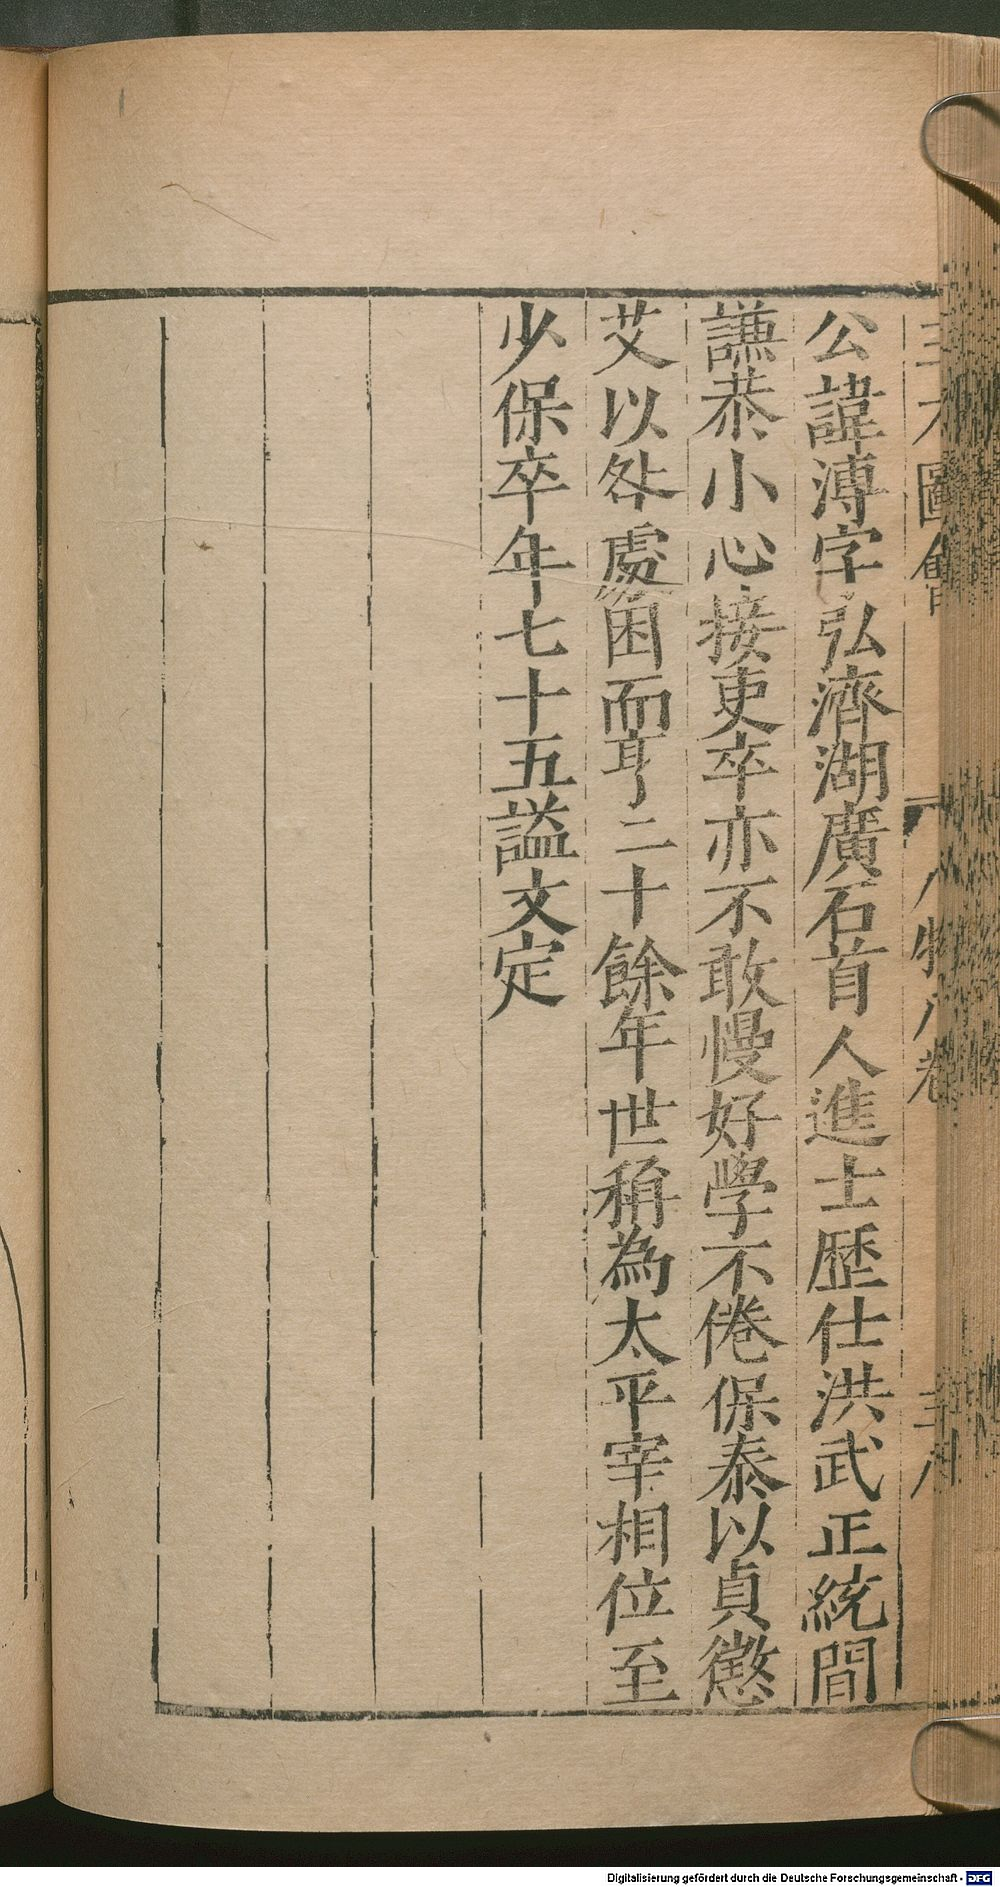 三才圖會 人物八卷 三八
公諱溥字弘濟湖廣石首人進士歷仕洪武正統間
謙恭小心接吏卒亦不敢慢好學不倦保泰以貞懲
艾以咎處困而亨二十餘年世稱為太平宰相位至
少保卒年七十五謚文定
Digitalisierung gefördert durch die Deutsche Forschungsgemeinschaft - DFG